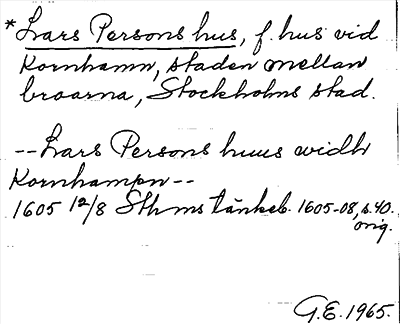 *Lars Persons hus, f. hus vid
Kornhamn, staden mellan
broarna, Stockholms stad.
--Lars Persons huus widh
Kornhampn--
1605 12/8 Sthms tänkeb. 1605-08, s. 40.
orig.
G.E. 1965.